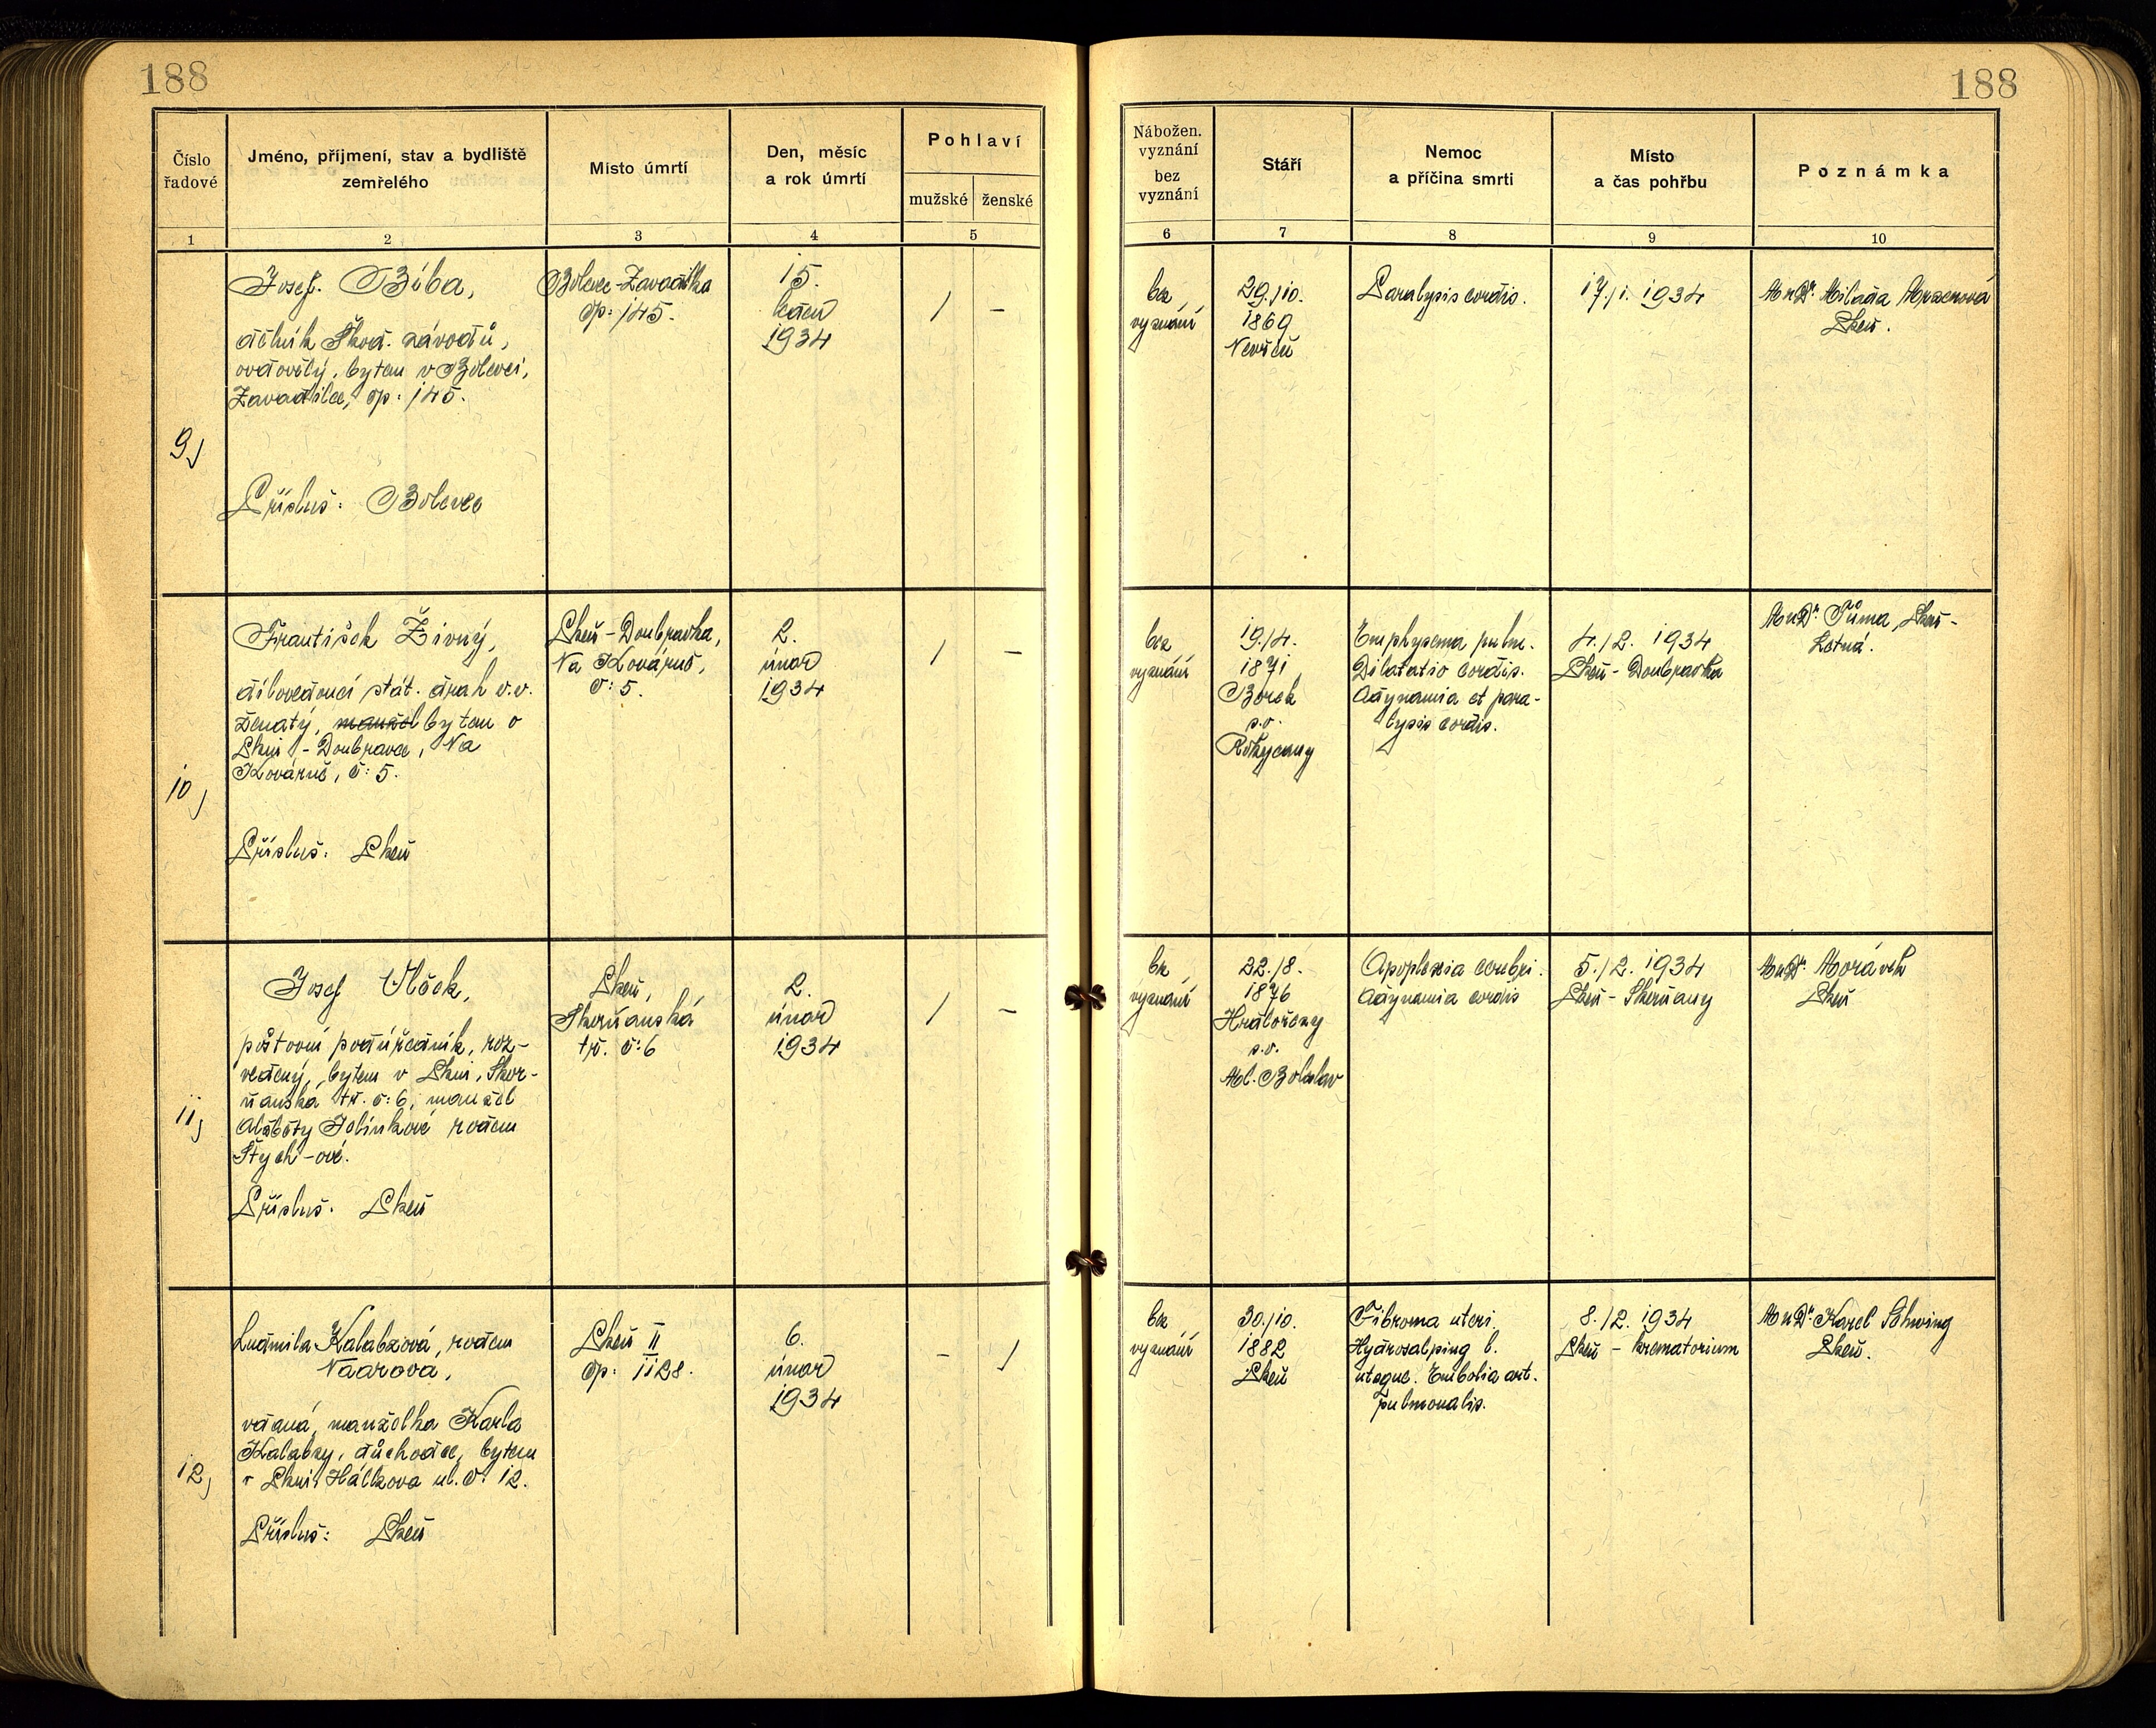 188
188
Číslo řadové
Jméno, příjmení, stav a bydliště zemřelého
Místo úmrtí
Den, měsíc a rok úmrtí
Pohlaví
mužské
ženské
Nábožen. vyznání bez vyznání
Stáří
Nemoc a příčina smrti
Místo a čas pohřbu
Poznámka
1
2
3
4
5
6
7
8
9
10
9)
Josef Bíba,
dělník Škod. závodů,
ovdovělý, bytem v Bolevci,
Zavadilce, čp: 145.
Přísluš: Bolevec
Bolevec-Zavadilka
čp: 145.
15.
leden
1934
/
–
bez
vyznání
29./10.
1869
Nevřeň
Paralysis cordis.
17./1. 1934
MuDr. Milada
Plzeň.
10)
František Živný,
dílovedoucí stát. drah v.v.
ženatý, manžel bytem v
Plzni - Doubravce, Na
Kovárně, č: 5.
Přísluš: Plzeň
Plzeň-Doubravka,
Na Kovárně,
č: 5.
2.
únor
1934
/
–
bez
vyznání
19./4.
1871
Borek
s.o.
Rokycany
Emphysema pulm.
Dilatatio cordis.
Adynamia et para-
lysis cordis.
4./2. 1934
Plzeň - Doubravka
MuDr. Tůma, Plzeň-
Letná.
11)
Josef Vlček,
poštovní podúředník, roz-
vedený, bytem v Plzni, Skvr-
ňanská tř. č: 6, manžel
Alžběty Jelínkové rodem
Štych-ové.
Přísluš: Plzeň
Plzeň,
Skvrňanská
tř. č: 6
2.
únor
1934
/
–
bez
vyznání
22./8.
1876
s.o.
Ml. Boleslav
Apoplexia cerebri.
Adynamia cordis
5./2. 1934
Plzeň - Skvrňany
MuDr. Morávek
Plzeň
12)
Ludmila Kalabzová, rodem
Naarova,
vdaná, manželka Karla
Kalabzy, důchodce, bytem
v Plzni, Hálkova ul. č: 12.
Přísluš: Plzeň
Plzeň II
čp: 1128.
6.
únor
1934
–
/
bez
vyznání
30./10.
1882
Plzeň
Fibroma uteri.
Hydrosalping l.
utoque. Embolia art.
pulmonalis.
8./2. 1934
Plzeň - krematorium
MuDr. Karel Schwing
Plzeň.